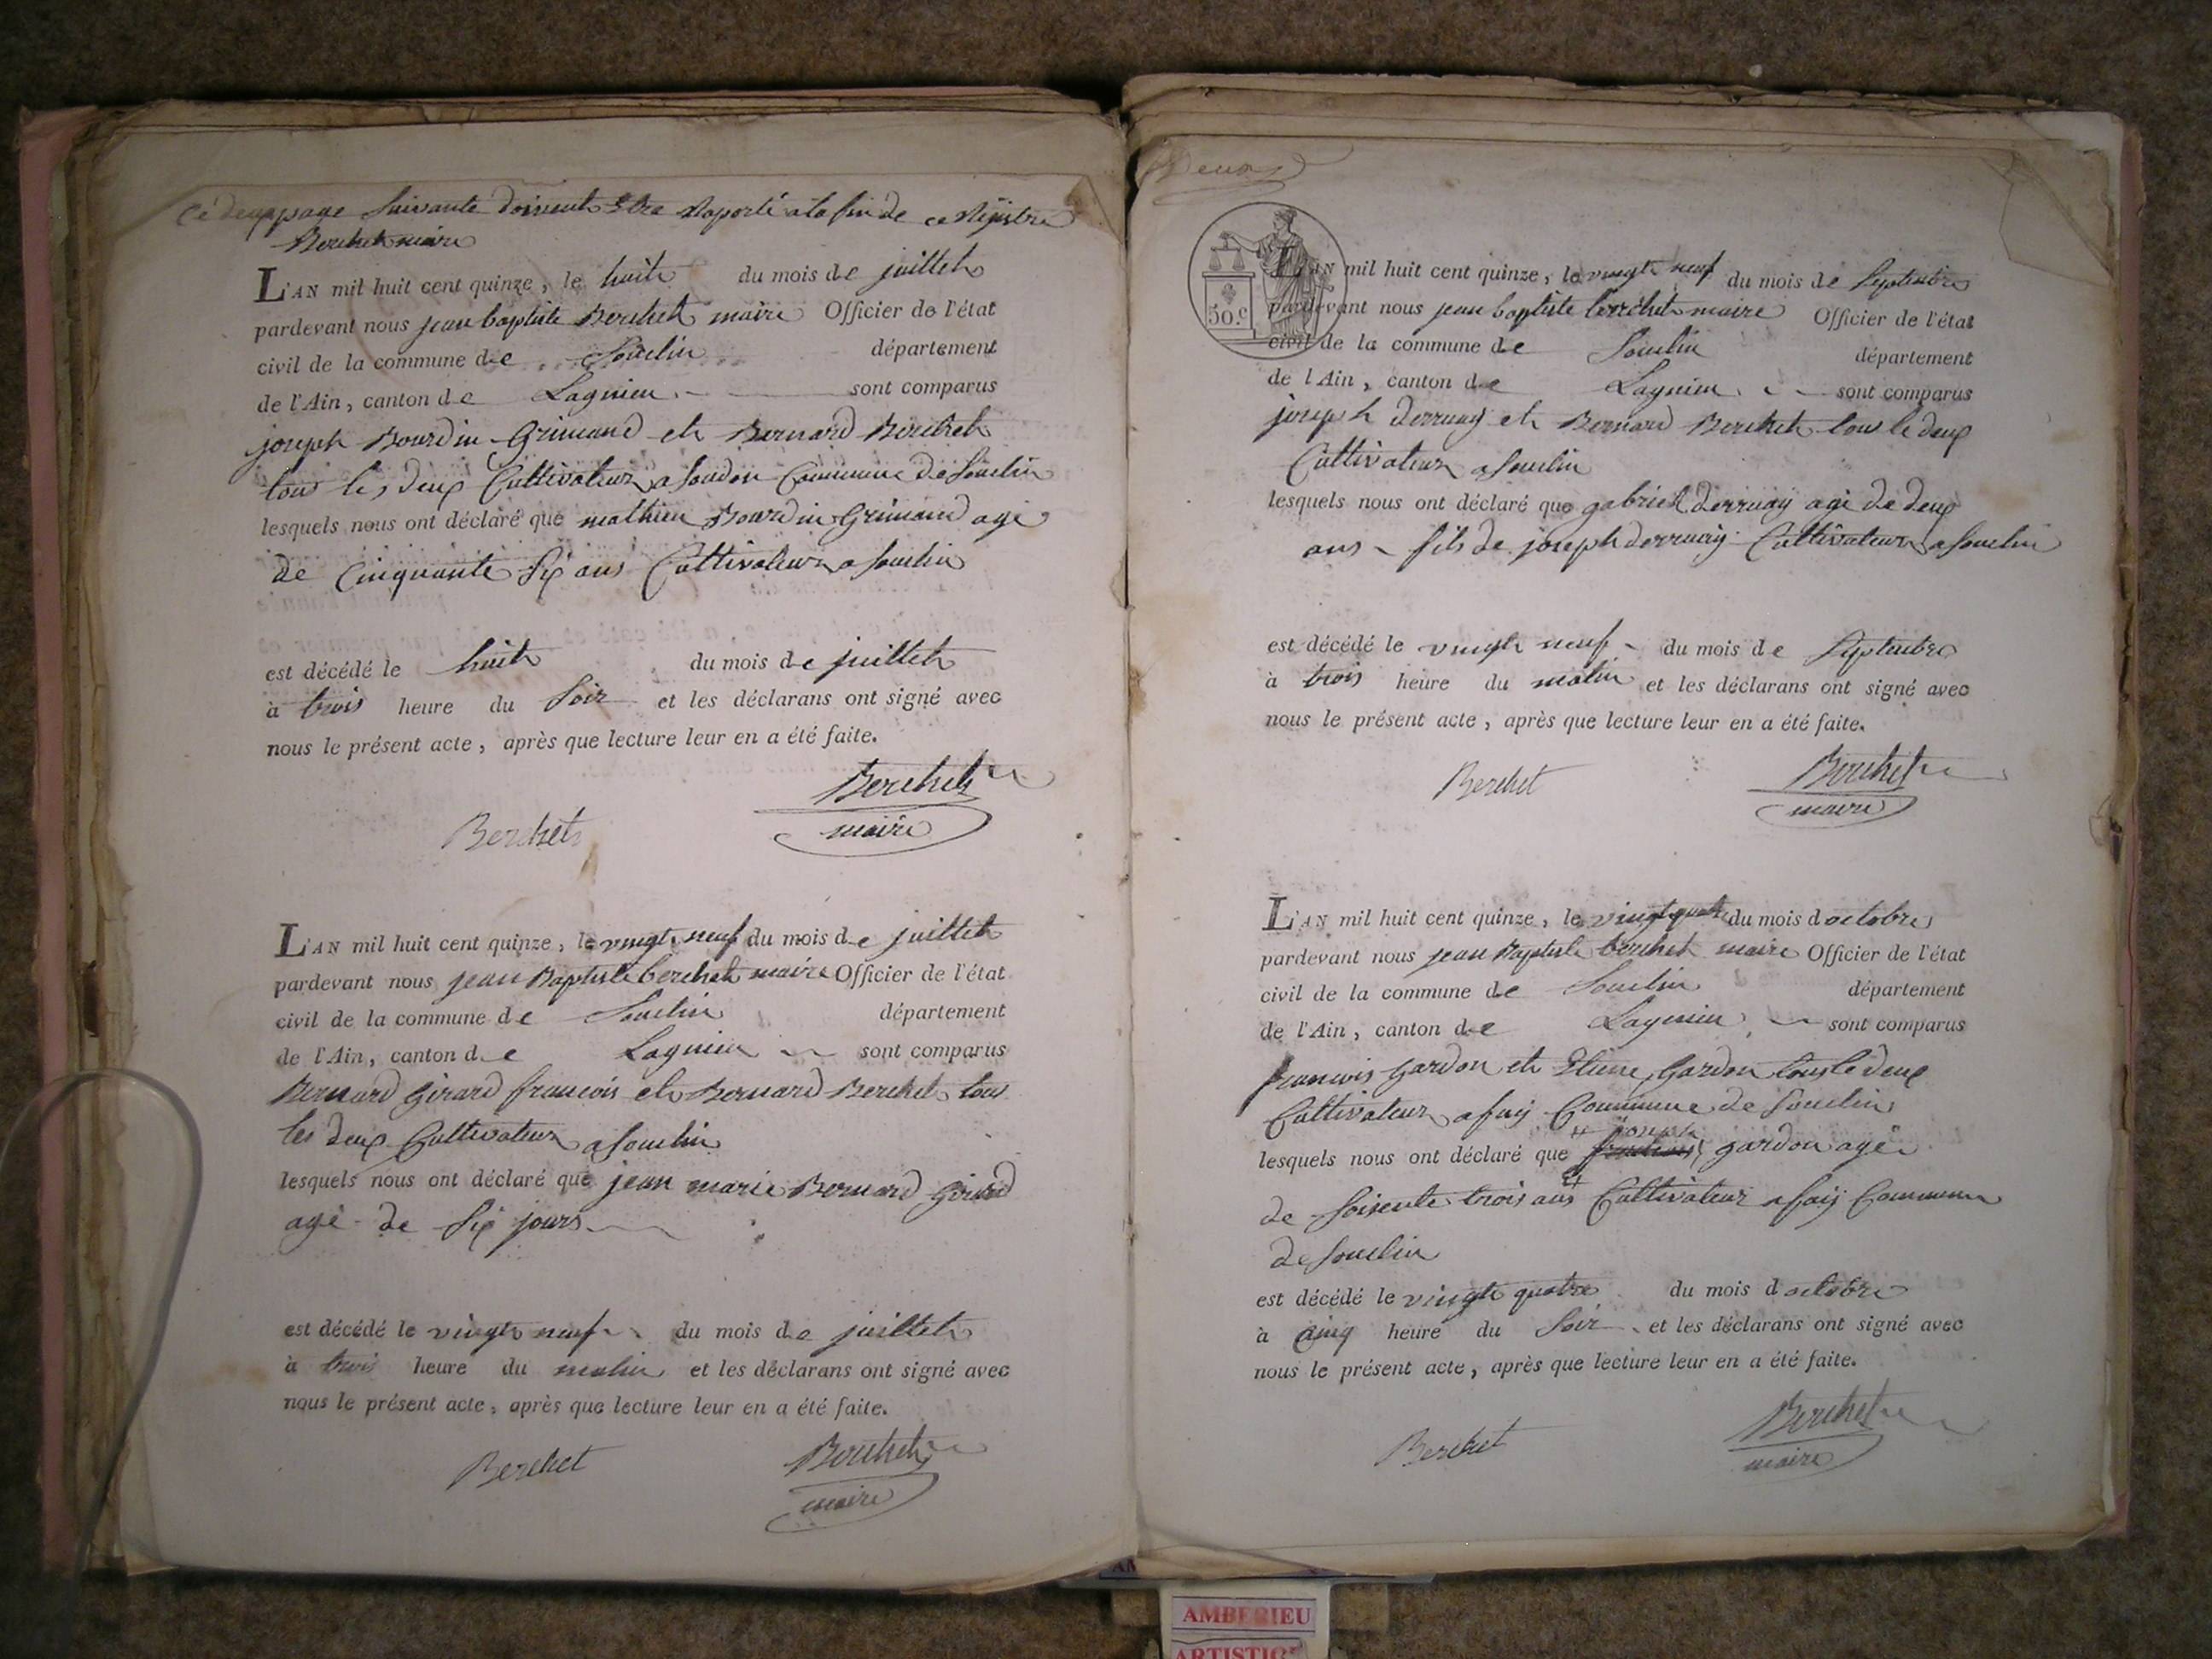 Cé deux page Suivante doivent Etre Raporté a la fin de ce Régistre
Berchet maire
L'AN mil huit cent quinze, le huit du mois de juillet
pardevant nous jean baptiste Berchet maire Officier de l'état
civil de la commune de Souclin département
de l'Ain, canton de Lagnieu sont comparus
joseph Bourdin Grimaud et Bernard Berchet
tous les deux Cultivateur a Soudon Commune de Souclin
lesquels nous ont déclaré que mathieu Bourdin Grimaud agé
de Cinquante Six ans Cultivateur a Souclin
est décédé le huit du mois de juillet
à trois heure du Soir et les déclarans ont signé avec
nous le présent acte, après que lecture leur en a été faite.
Berchet
maire
Berchet
L'AN mil huit cent quinze, le vingt neuf du mois de juillet
pardevant nous jean Baptiste berchet maire Officier de l'état
civil de la commune de Souclin département
de l'Ain, canton de Lagnieu sont comparus
Bernard Girard francois et Bernard Berchet tous
les deux Cultivateur a Souclin
lesquels nous ont déclaré que jean marie Bernard Girard
agé de Six jours
est décédé le vingt neuf du mois de juillet
à trois heure du matin et les déclarans ont signé avec
nous le présent acte, après que lecture leur en a été faite.
Berchet Berchet
maire
50.c
L'AN mil huit cent quinze, le vingt neuf du mois de Septembre
pardevant nous jean baptiste berchet maire Officier de l'état
civil de la commune de Souclin département
de l'Ain, canton de Lagnieu sont comparus
joseph derruaz et Bernard Berchet tous le deux
Cultivateur a Souclin
lesquels nous ont déclaré que gabriel derruaz agé de deux
ans fils de joseph derruaz Cultivateur a Souclin
est décédé le vingt neuf du mois de Septembre
à trois heure du matin et les déclarans ont signé avec
nous le présent acte, après que lecture leur en a été faite.
Berchet Berchet
maire
L'AN mil huit cent quinze, le vingt quatre du mois d octobre
pardevant nous jean Baptiste berchet maire Officier de l'état
civil de la commune de Souclin département
de l'Ain, canton de Lagnieu sont comparus
francois gardon et Etiene gardon tous le deux
Cultivateur a fay Commune de Souclin
joseph
lesquels nous ont déclaré que gardon agé
de Soisente trois ans Cultivateur a fay Commune
de Souclin
est décédé le vingt quatre du mois d octobre
à cinq heure du Soir et les déclarans ont signé avec
nous le présent acte, après que lecture leur en a été faite.
Berchet Berchet
maire
AMBERIEU